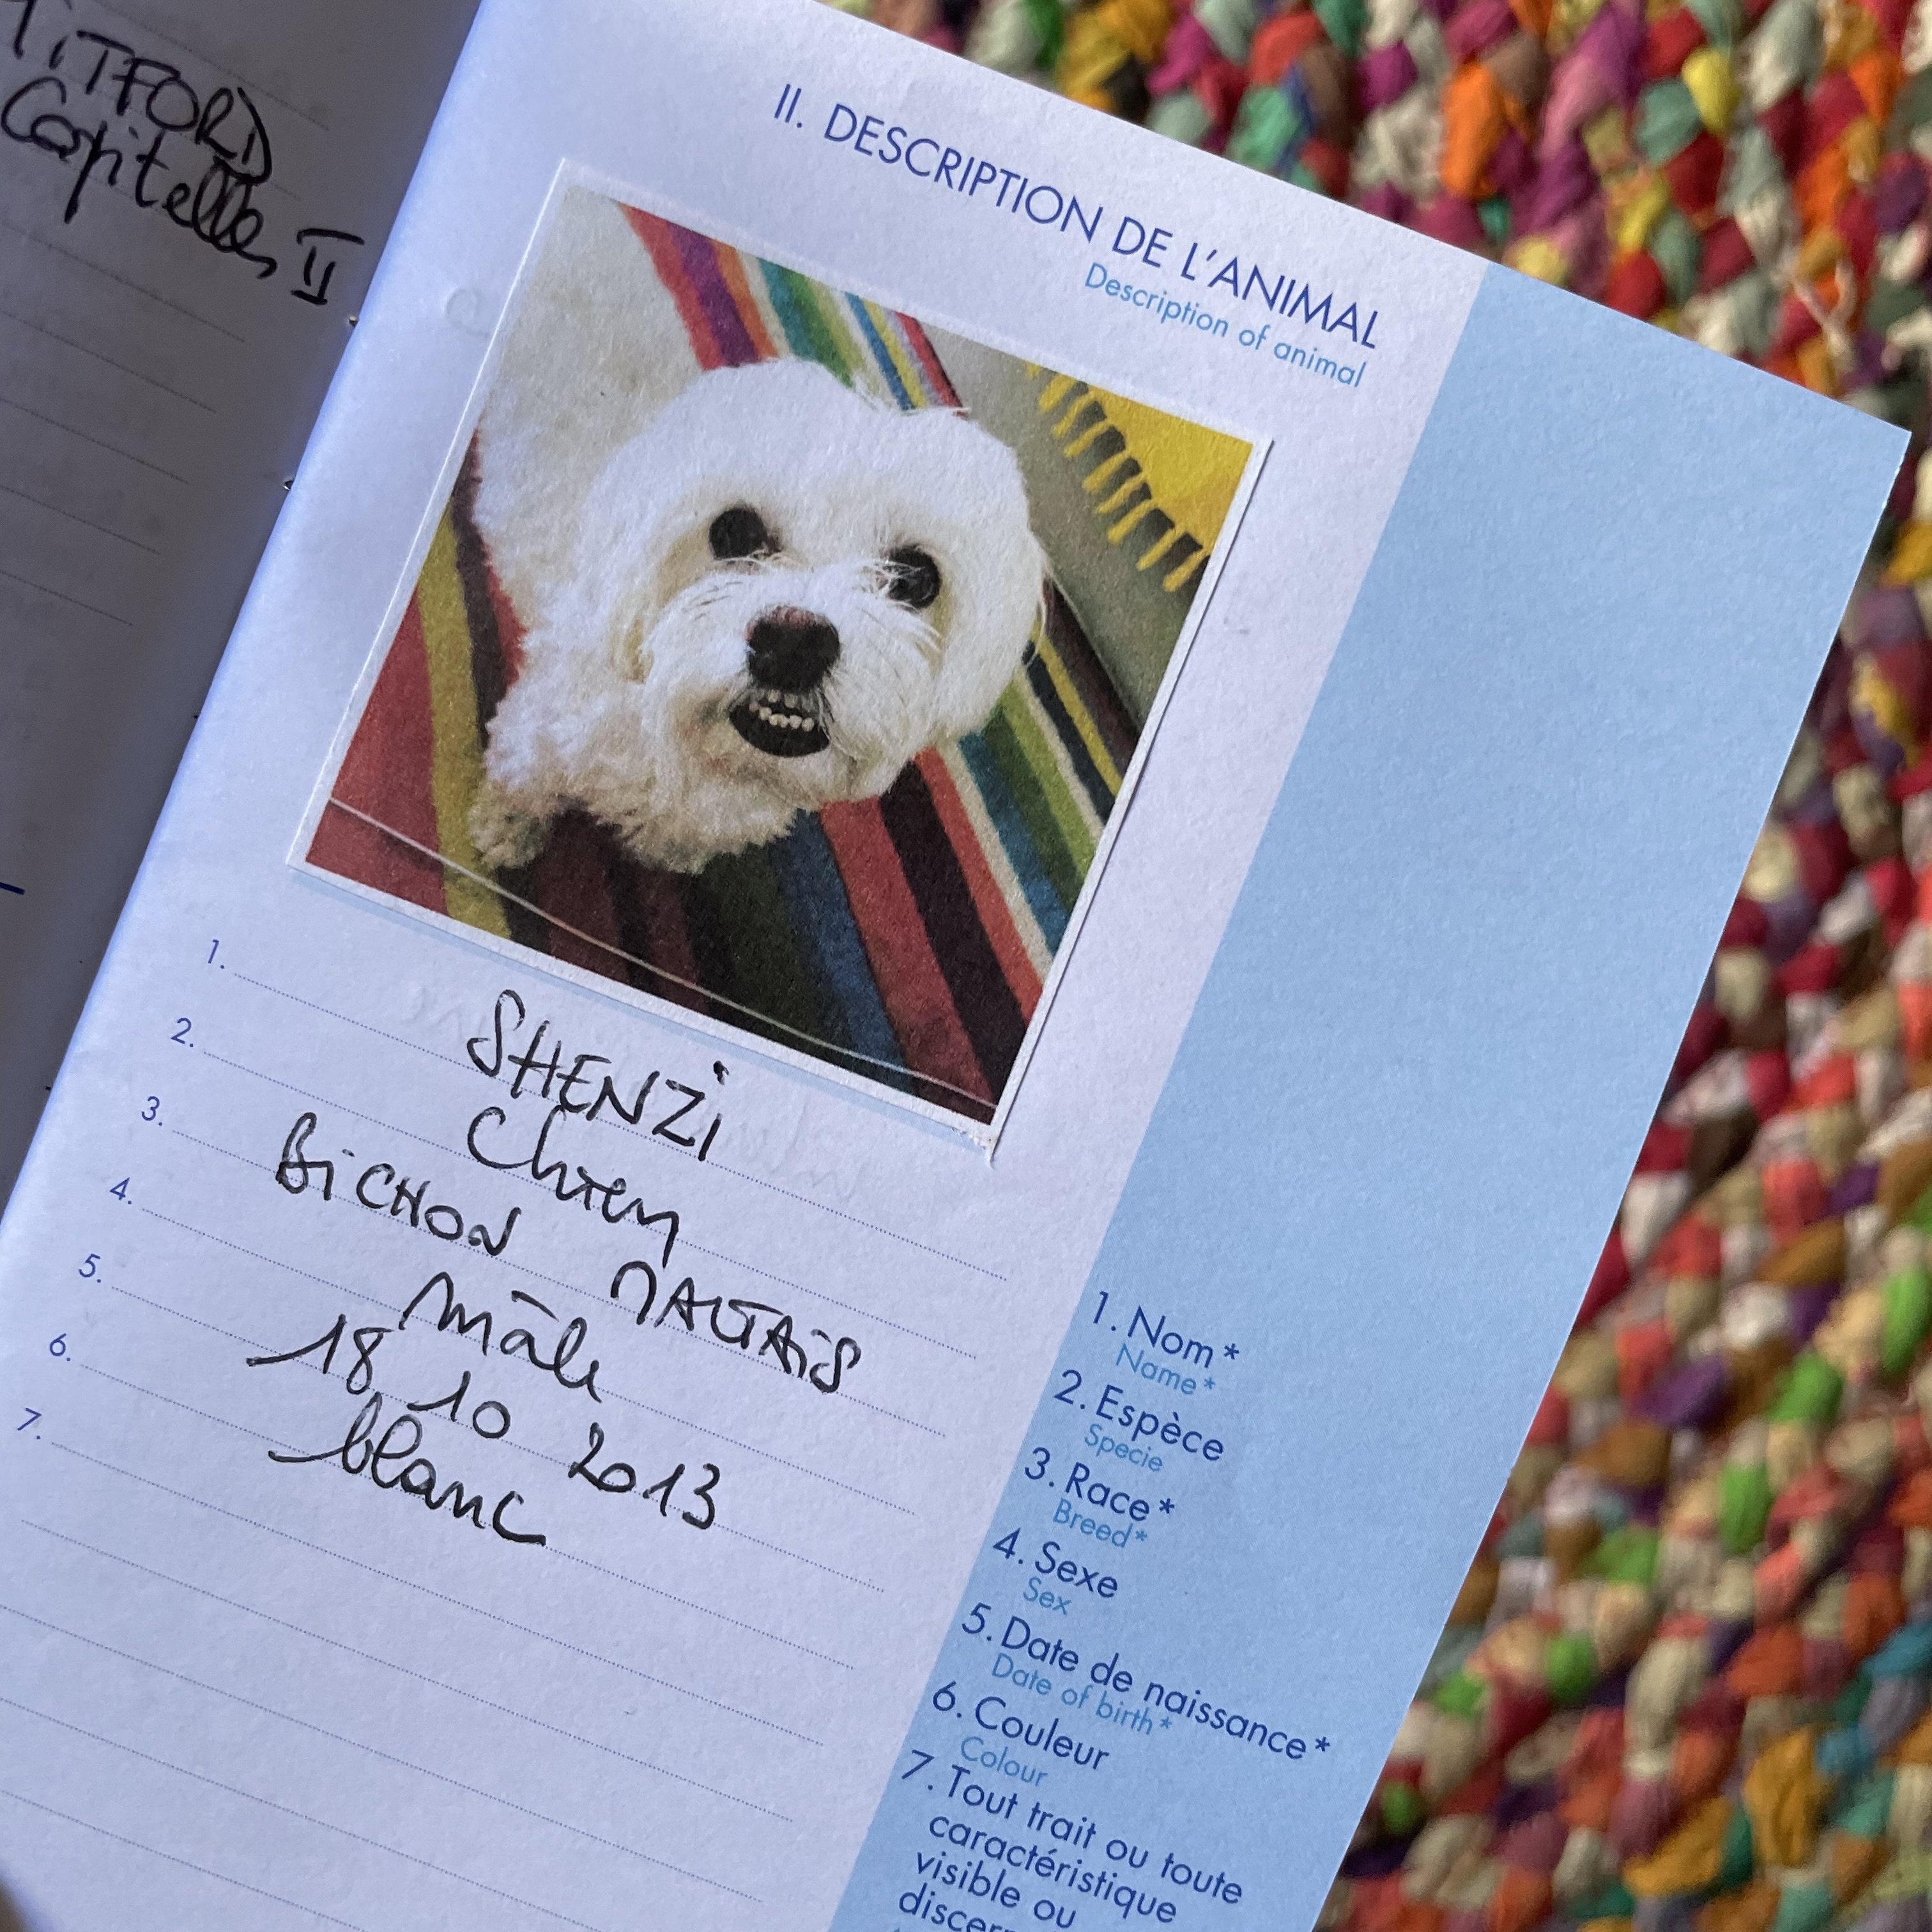 TITFORD
Capitelles II
II. DESCRIPTION DE L'ANIMAL
Description of animal
1. SHENZi
2. Chien
3. BiCHON MALTAiS
4. mâle
5. 18 10 2013
6. blanc
7.
1. Nom *
Name *
2. Espèce
Specie
3. Race *
Breed *
4. Sexe
Sex
5. Date de naissance *
Date of birth *
6. Couleur
Colour
7. Tout trait ou toute
caractéristique
visible ou